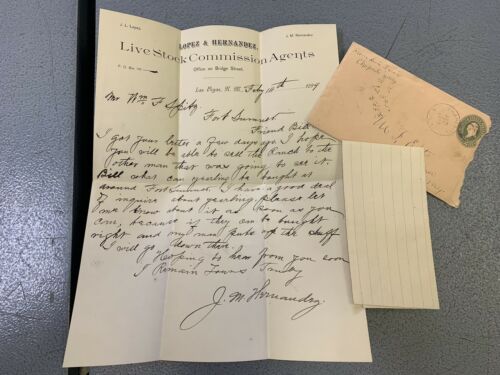 J. L. Lopez,
J. M. Hernandez
LOPEZ & HERNANDEZ,
Live Stock Commission Agents
P. O. Box
Office on Bridge Street.
Las Vegas, N. M., Feby 14th
Mr Wm F
Fort Sumner
Friend Bill
I got your letter a few days ago I hope
you will be able to sell the Ranch to the
other man that was going to see it.
Bill what can yearling be bought at
around Fort Sumner, I have a good deal
of inquire about yearling please let
me know about it as soon as you
can, because is they can be bought
right and my man puts up the stuff
I will go down there.
Hoping to hear from you soon
I Remain Yours Truly
J. M Hernandez